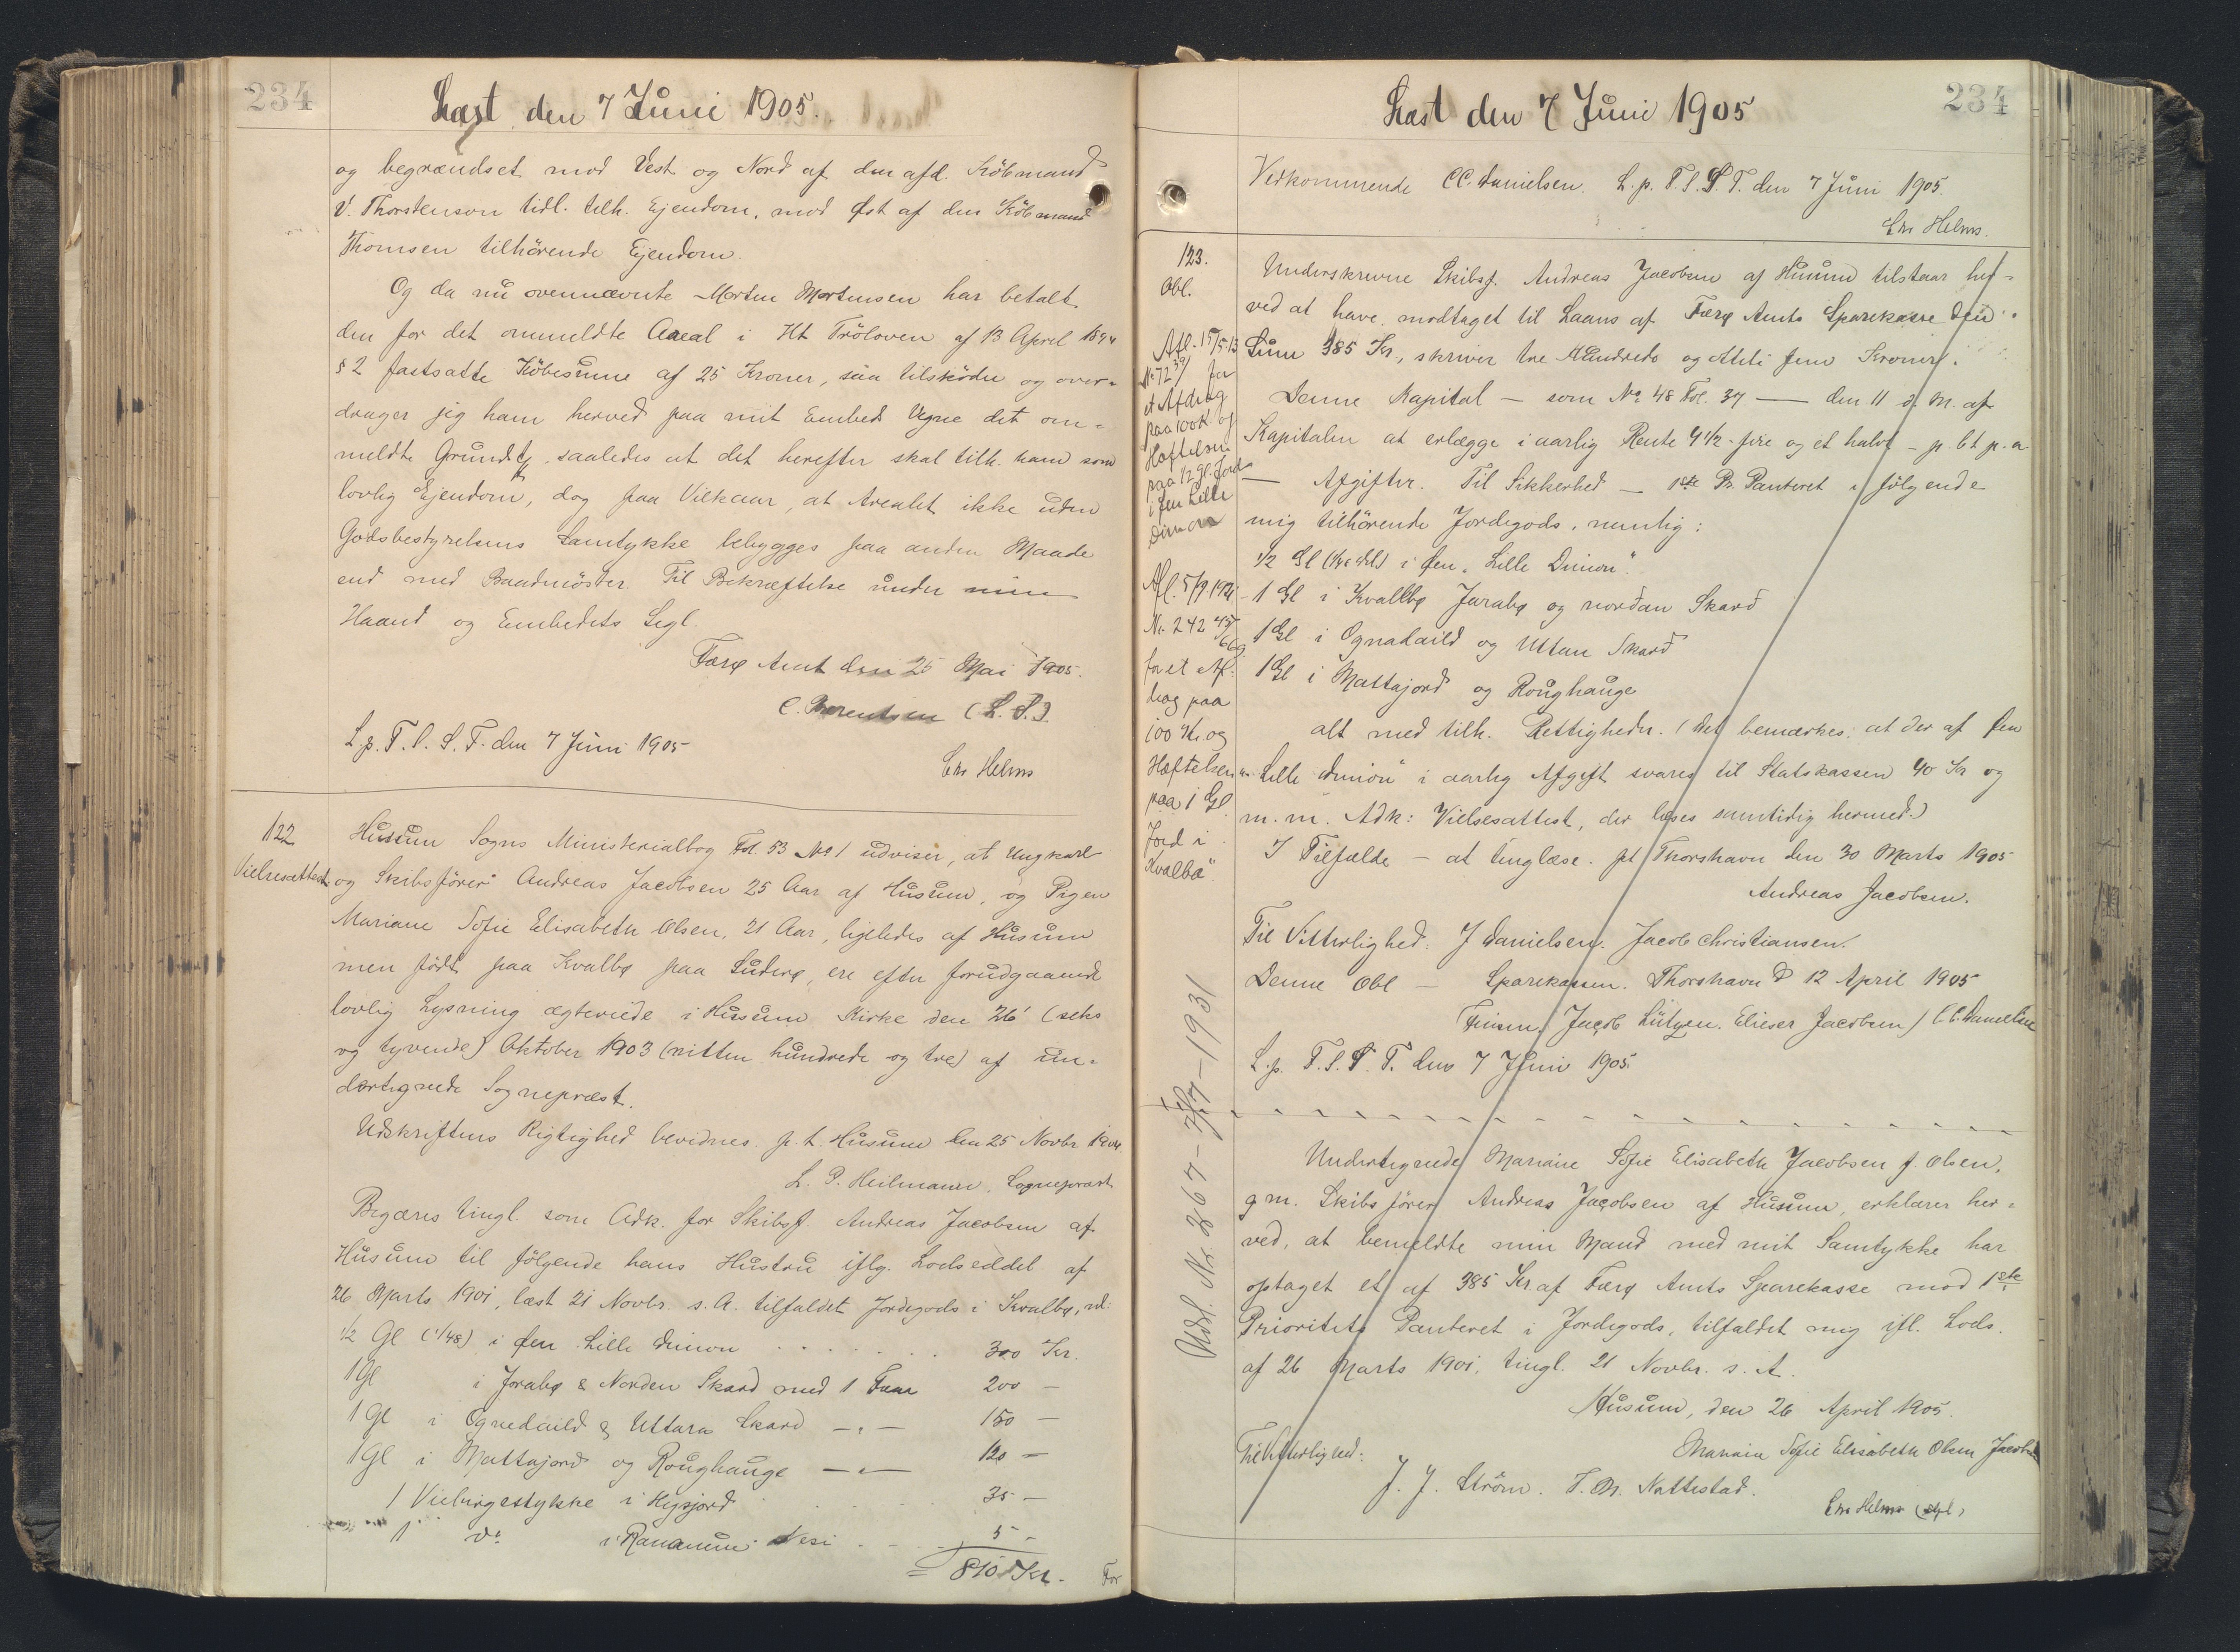 234
Læst den 7 Juni 1905.
og begrændset mod Vest og Nord af den afd. Köbmand
V. Thorstenson tidl. tilh. Ejendom, mod Øst af den Köbmand
Thomsen tilhörende Ejendom.
Og da nu ovennævnte Morten Mortensen har betalt
den for det ommeldte Areal i Ht Tröloven af 13 April 1894
§ 2 fastsatte Köbesum af 25 Kroner, saa tilsköder og over-
drager jeg ham herved paa mit Embeds Vegne det om-
meldte Grundst., saaledes at det herefter skal tilh. ham som
lovlig Ejendom, dog paa Vilkaar, at Arealet ikke uden
Godsbestyrelsens Samtykke bebygges paa anden Maade
end med Baadnöster. Til Bekræftelse under min
Haand og Embedets Segl.
Færø Amt den 25 Mai 1905.
C. Bærentsen (L.S.).
L.p. F.S.S.T. den 7 Juni 1905
Chr Helms
122
Vielsesattest
Husum Sogns Ministerialbog Fol. 53 No 1 udviser, at Ungkarl
og Skibsförer Andreas Jacobsen 25 Aar af Husum, og Pigen
Mariane Sofie Elisabeth Olsen, 21 Aar, ligeledes af Husum
men födt paa Kvalbø paa Suderø, ere efter forudgaaende
lovlig Lysning ægteviede i Husum Kirke den 26' (seks
og tyvende) Oktober 1903 (nitten hundrede og tre) af un-
dertegnede Sognepræst.
Udskriftens Rigtighed bevidnes. p.t. Husum den 25 Novbr 1904
L. P. Heilmann, Sognepræst
Begæres tingl. som Adk. for Skibsf. Andreas Jacobsen af
Husum til fölgende hans Hustru iflg. Lodseddel af
26 Marts 1901, læst 21 Novbr. s. A. tilfaldet Jordegods i Kvalbø, nl:
1/2 Gl (1/48) i Øen Lille Dimon . . . . . . . 300 Kr.
1 Gl i Jorabø & Norden Skard med 1 Faar 200 –
1 Gl i Ognedaild & Uttara Skard – " – 150 –
1 Gl i Mattajord og Roughauge – " – 120 –
1 Viebugestykke i Heygjord . . . . 35 –
1 do i Ranamum Nesi . . . 5 –
= 810 Kr.
For
234
Læst den 7 Juni 1905
Vedkommende C.C. Danielsen. L.p. F.S.S.T. den 7 Juni 1905.
Chr Helms.
123.
Obl.
Underskrevne Skibsf. Andreas Jacobsen af Husum tilstaar her-
ved at have modtaget til Laans af Færø Amts Sparekasse den
Sum 385 Kr, skriver tre Hundrede og otteti fem Kroner.
Denne Kapital – som No 48 Fol. 37 — den 11 d. M. af
Kapitalen at erlægge i aarlig Rente 4 1/2 - fire og et halvt - p. Ct p. a
— Afgifter. Til Sikkerhed – 1ste Pr. Panteret i fölgende
mig tilhörende Jordegods, nemlig:
1/2 Gl i Øen "Lille Dimon".
1 Gl i Kvalbø Jorabø og nordan Skard
1 Gl i Ognadaild og Uttan Skard
1 Gl i Mattajord og Roughauge
alt med tilh. Rettigheder. (Det bemærkes, at der af Øen
"Lille Dimon" i aarlig Afgift svares til Statskassen 40 Kr og
m. m. Adk: Vielsesattest, der læses samtidig hermed.)
I Tilfælde – at tinglæse. pt Thorshavn den 30 Marts 1905
Andreas Jacobsen.
Til Vitterlighed: J Danielsen. Jacob Christiansen.
Denne Obl – Sparekassen. Thorshavn D 12 April 1905
Jacob Lützen. Elieser Jacobsen / C.C. Danielsen
L.p. F.S.S.T. den 7 Juni 1905.
Undertegnede Mariane Sofie Elisabeth Jacobsen f. Olsen,
g m. Skibsförer Andreas Jacobsen af Husum, erklærer her-
ved, at bemeldte min Mand med mit Samtykke har
optaget et af 385 Kr. af Færø Amts Sparekasse mod 1ste
Prioritets Panteret i Jordegods, tilfaldet mig ifl. Lods.
af 26 Marts 1901, tingl. 21 Novbr. s. A.
Husum, den 26 April 1905.
Mariane Sofie Elisabeth Olsen Jacobsen
Til Vitterlighed:
J. J. Ström. T. M. Nattestad.
Chr Helms
Afl. 15/5 13
No 72 for
et Afdrag
paa 100 Kr og
Hæftelsen
paa 1/2 Gl. Jord
i Øen Lille
Dimon
Afl. 5/9 1921
Nr. 242
for et Af-
drag paa
100 Kr og
Hæftelsen
paa 1 Gl
Jord i
Kvalbø
Udsl. Nr 267 – – 1931